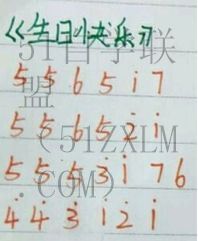 《生日快乐》
51自学联
5 5 6 5 i̇ 7
盟
5 5 6 5 2̇ i̇
(51ZXLM
5 5 5̇ 3̇ i̇ 7 6
.COM)
4̇ 4̇ 3̇ 1̇ 2̇ 1̇